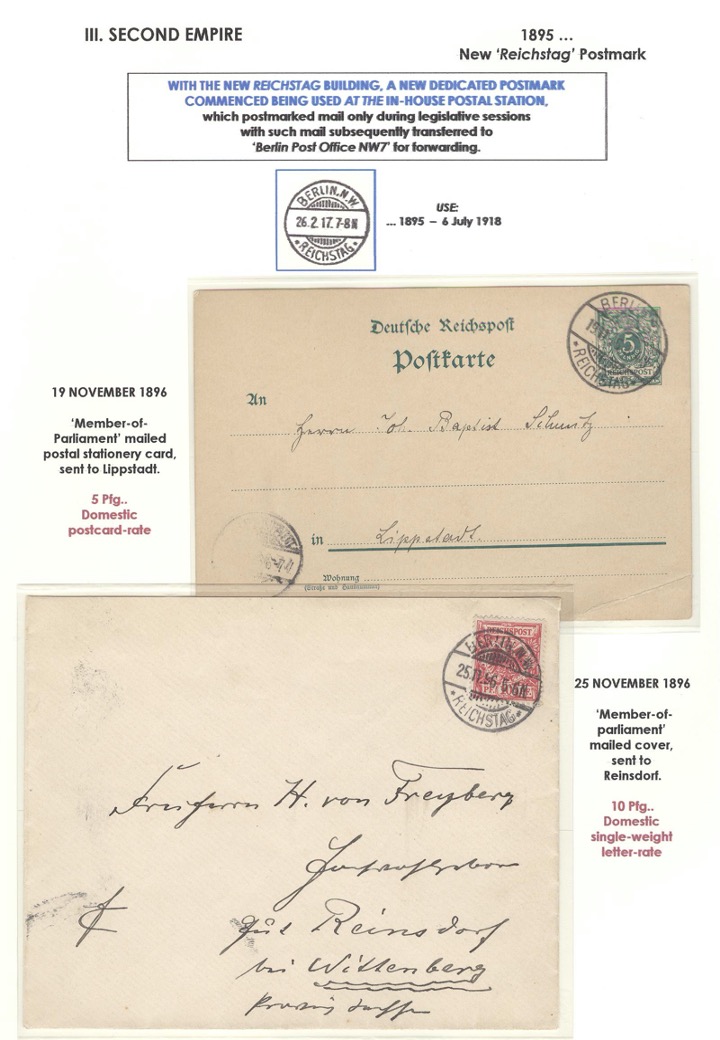 III. SECOND EMPIRE
1895 ...
New ‘Reichstag’ Postmark
WITH THE NEW REICHSTAG BUILDING, A NEW DEDICATED POSTMARK
COMMENCED BEING USED AT THE IN-HOUSE POSTAL STATION,
which postmarked mail only during legislative sessions
with such mail subsequently transferred to
‘Berlin Post Office NW7’ for forwarding.
BERLIN.N.W.
26.2.17.7-8N
*REICHSTAG*
USE:
... 1895 – 6 July 1918
Deutsche Reichspost
Postkarte
BERLIN
5
REICHSPOST
*REICHSTAG*
An
Herrn Joh. Baptist Schmitz
in Lippstadt.
Wohnung
(Straße und Hausnummer)
19 NOVEMBER 1896
‘Member-of-
Parliament’ mailed
postal stationery card,
sent to Lippstadt.
5 Pfg..
Domestic
postcard-rate
REICHSPOST
BERLIN N.W.
25.11.96.5-6N
*REICHSTAG*
Freiherrn H. von Freyberg
Gut Reinsdorf
bei Wittenberg
Provinz Sachsen
25 NOVEMBER 1896
‘Member-of-
parliament’
mailed cover,
sent to
Reinsdorf.
10 Pfg..
Domestic
single-weight
letter-rate